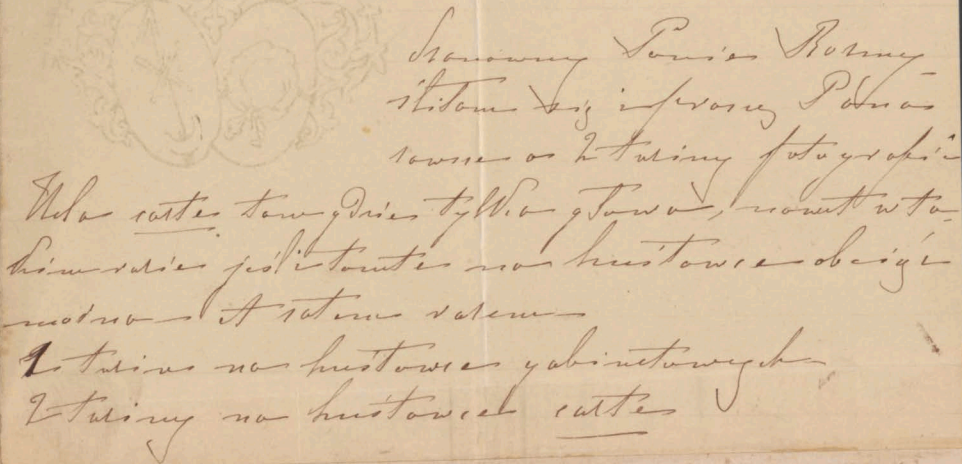 Szanowny Panie Rozmy
śliłam się i proszę Pana
zawsze o 2 tuziny fotografii
Ala cartes tam gdzie tylko głowa, nawet w ta-
kim razie jeśli tamte na huśtawce obciąć
można A zatem razem
1 tuzin na huśtawce gabinetowych
2 tuziny na huśtawce cartes